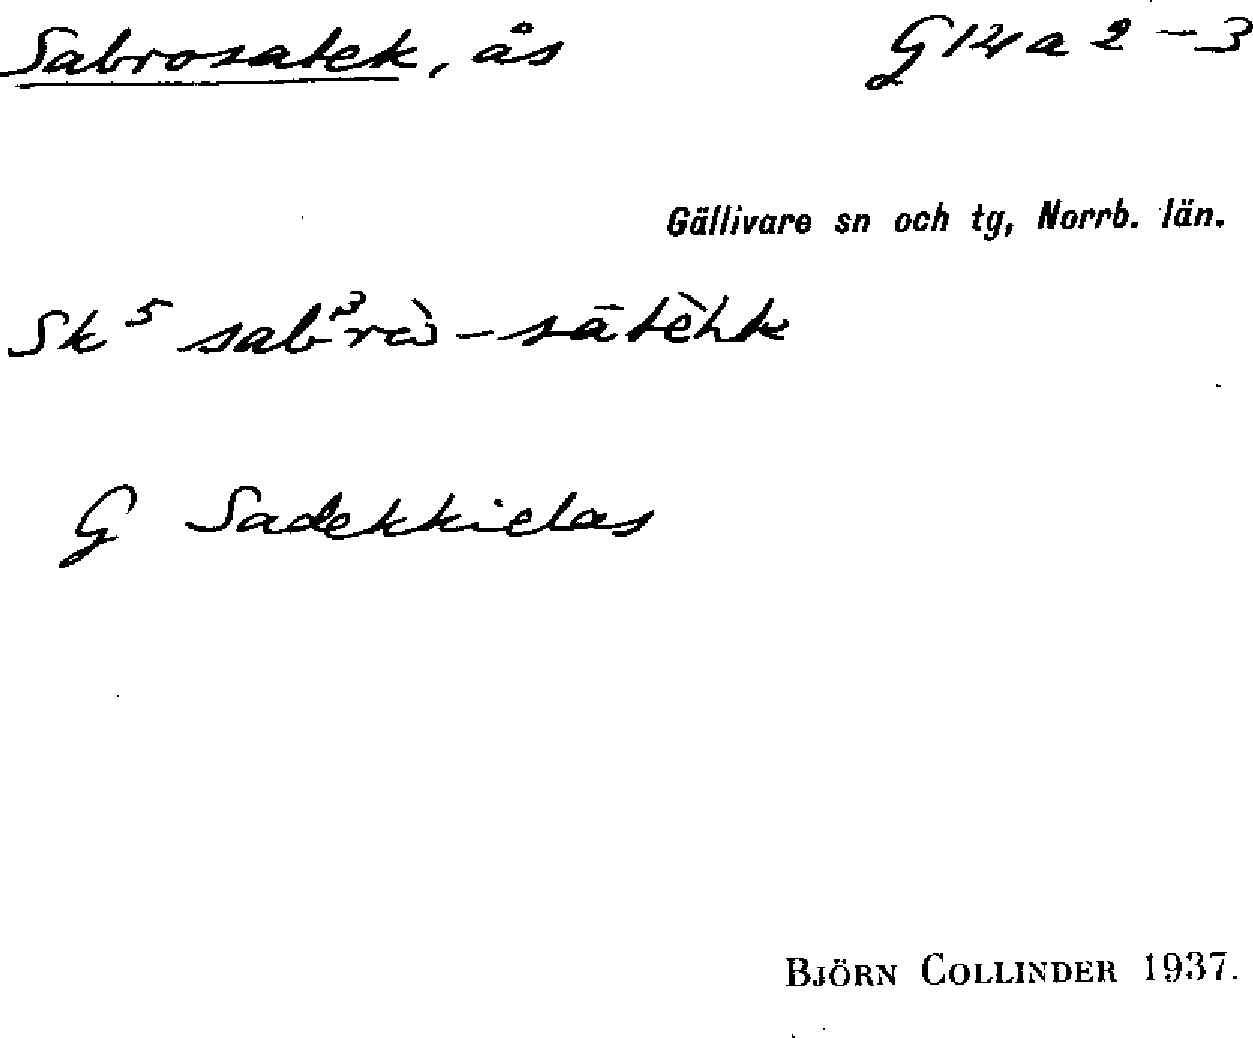 Sabrosatek, ås G 14 a 2-3
Gällivare sn och tg, Norrb. län.
Sk⁵ sab³rò-sātèhk
G Sadekkielas
BJÖRN COLLINDER 1937.